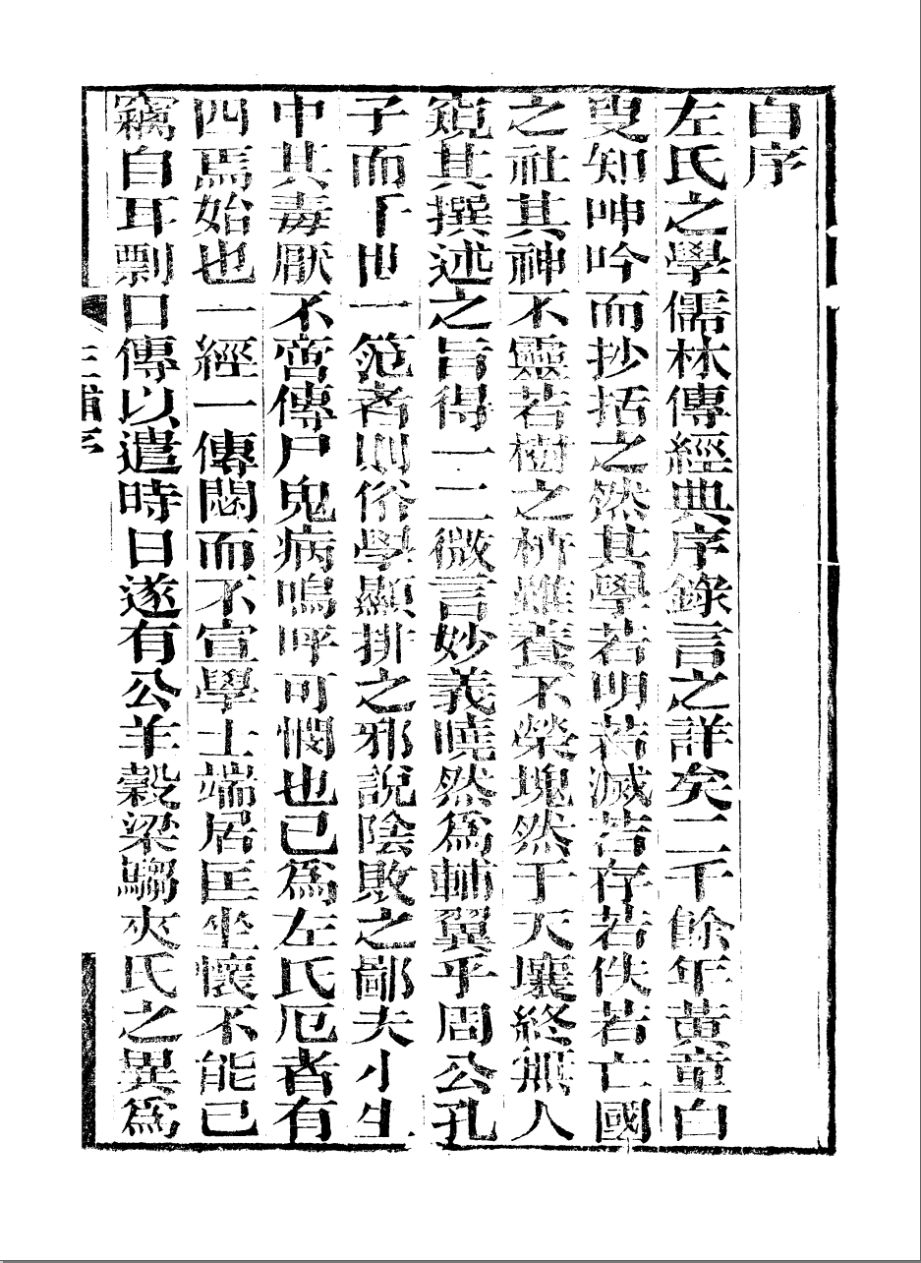 自序
左氏之學儒林傳經典序錄言之詳矣二千餘年黃童白
叟知呻吟而抄括之然其學若明若滅若存若佚若亡國
之社其神不靈若樹之枿雖養不榮塊然于天壤終無人
窺其撰述之旨得一二微言妙義曉然爲輔翼乎周公孔
子而千世一範者則俗學顯排之邪說陰敗之鄙夫小生
中其毒厭不啻傳尸鬼病嗚呼可憫也已爲左氏厄者有
四焉始也一經一傳閟而不宣學士端居匡坐懷不能已
竊自耳剽口傳以遣時日遂有公羊穀梁騶夾氏之異爲
左補序